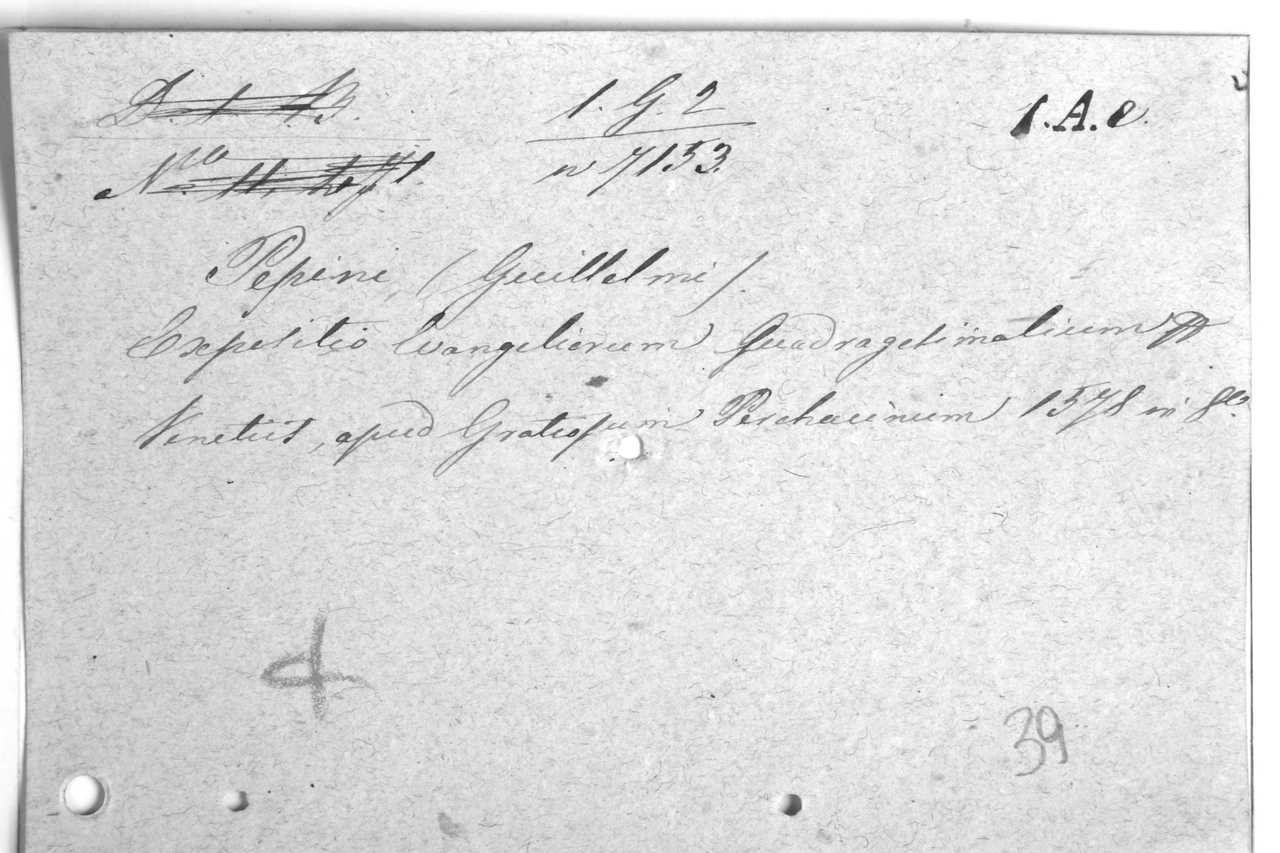 1. G. 2
1.A.e.
n 7153.
Pepini, (Guillelmi).
Expositio Evangeliorum Quadragesimalium
Venetiis, apud Gratiosum Perchacinum 1578 in 8vo
39